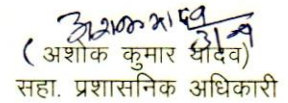 ( अशोक कुमार यादव)
सहा. प्रशासनिक अधिकारी